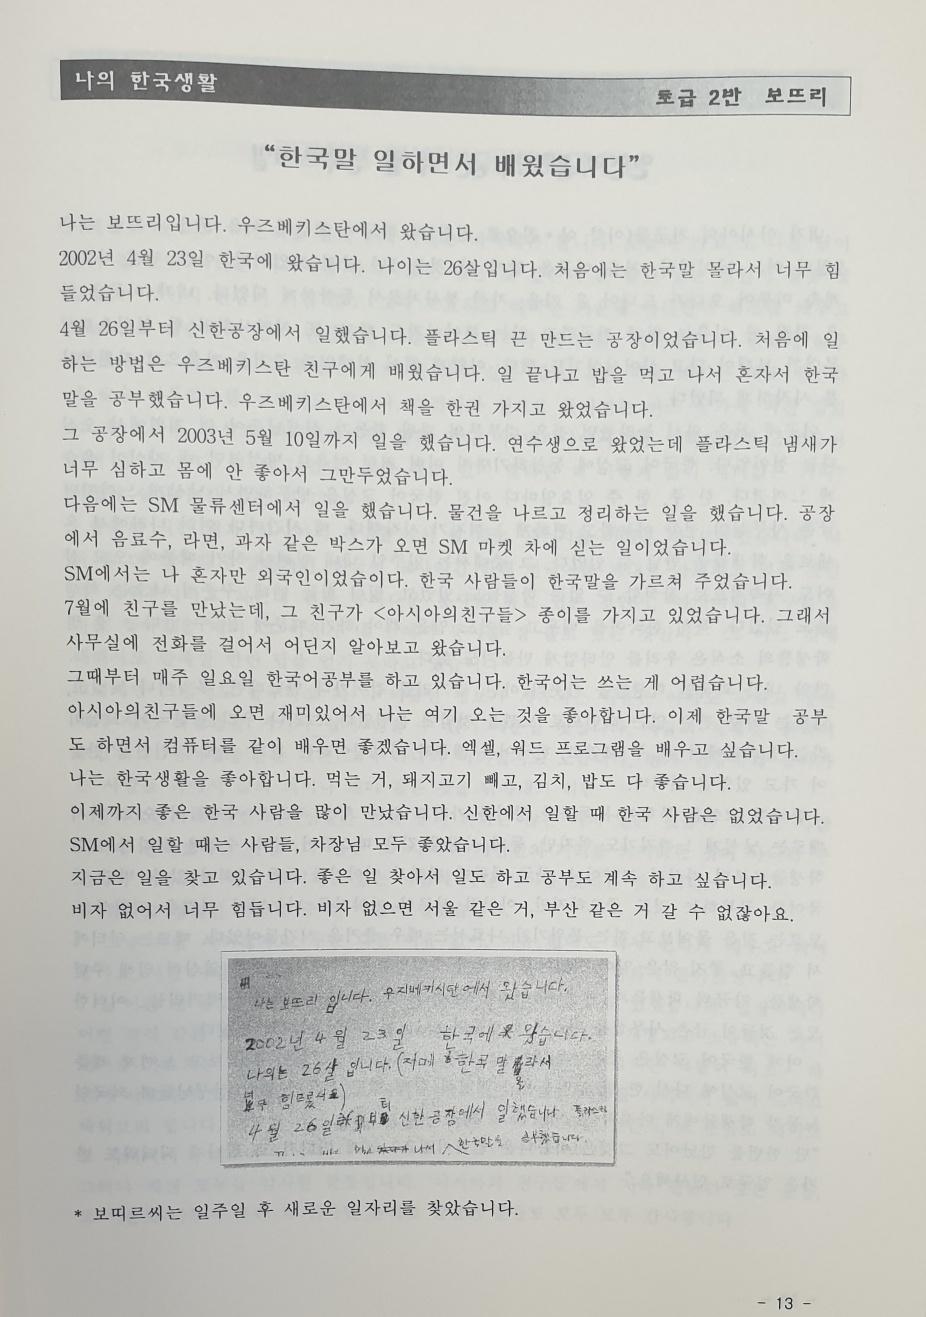 나의 한국생활
초급 2반 보뜨리
“한국말 일하면서 배웠습니다”
나는 보뜨리입니다. 우즈베키스탄에서 왔습니다.
2002년 4월 23일 한국에 왔습니다. 나이는 26살입니다. 처음에는 한국말 몰라서 너무 힘
들었습니다.
4월 26일부터 신한공장에서 일했습니다. 플라스틱 끈 만드는 공장이었습니다. 처음에 일
하는 방법은 우즈베키스탄 친구에게 배웠습니다. 일 끝나고 밥을 먹고 나서 혼자서 한국
말을 공부했습니다. 우즈베키스탄에서 책을 한권 가지고 왔었습니다.
그 공장에서 2003년 5월 10일까지 일을 했습니다. 연수생으로 왔었는데 플라스틱 냄새가
너무 심하고 몸에 안 좋아서 그만두었습니다.
다음에는 SM 물류센터에서 일을 했습니다. 물건을 나르고 정리하는 일을 했습니다. 공장
에서 음료수, 라면, 과자 같은 박스가 오면 SM 마켓 차에 싣는 일이었습니다.
SM에서는 나 혼자만 외국인이었습이다. 한국 사람들이 한국말을 가르쳐 주었습니다.
7월에 친구를 만났는데, 그 친구가 <아시아의친구들> 종이를 가지고 있었습니다. 그래서
사무실에 전화를 걸어서 어딘지 알아보고 왔습니다.
그때부터 매주 일요일 한국어공부를 하고 있습니다. 한국어는 쓰는 게 어렵습니다.
아시아의친구들에 오면 재미있어서 나는 여기 오는 것을 좋아합니다. 이제 한국말 공부
도 하면서 컴퓨터를 같이 배우면 좋겠습니다. 엑셀, 워드 프로그램을 배우고 싶습니다.
나는 한국생활을 좋아합니다. 먹는 거, 돼지고기 빼고, 김치, 밥도 다 좋습니다.
이제까지 좋은 한국 사람을 많이 만났습니다. 신한에서 일할 때 한국 사람은 없었습니다.
SM에서 일할 때는 사람들, 차장님 모두 좋았습니다.
지금은 일을 찾고 있습니다. 좋은 일 찾아서 일도 하고 공부도 계속 하고 싶습니다.
비자 없어서 너무 힘듭니다. 비자 없으면 서울 같은 거, 부산 같은 거 갈 수 없잖아요.
나는 보뜨리 입니다. 우지베키시단에서 왔습니다.
2002년 4월 23일 한국에 왔습니다.
나의는 26살 입니다. 한국 말
4월 26일 신한공장에서 일했습니다 플라스틱
* 보띠르씨는 일주일 후 새로운 일자리를 찾았습니다.
- 13 -